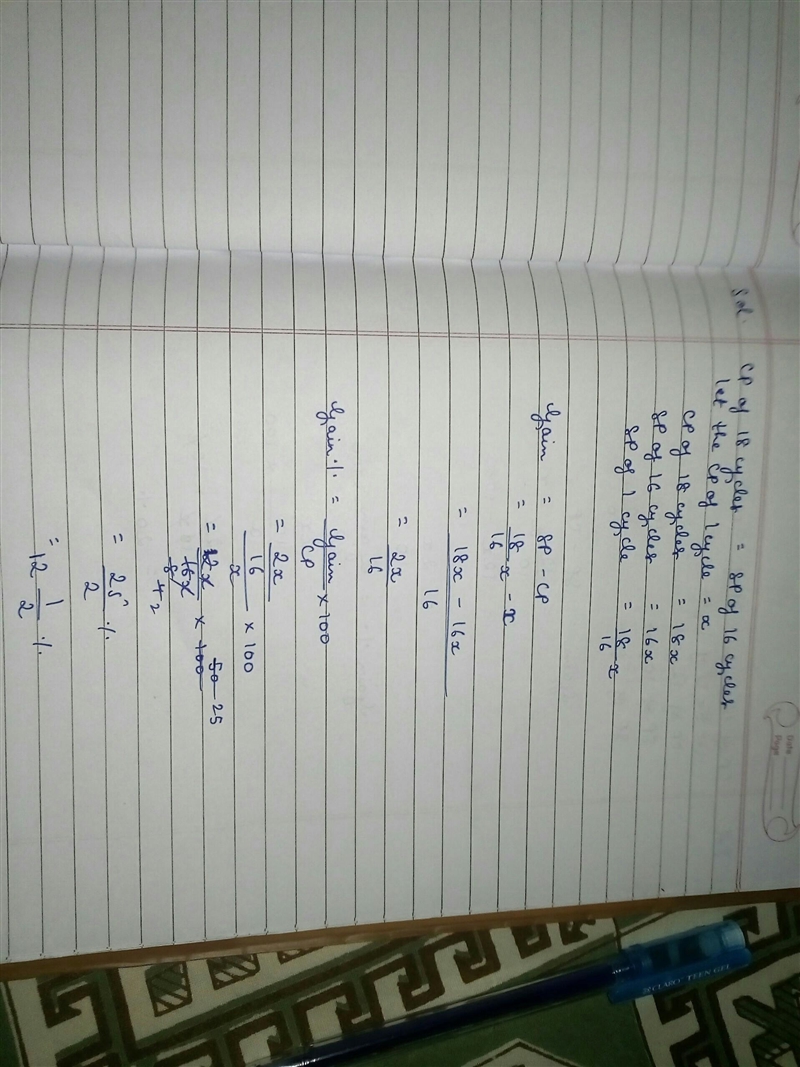 Date
Page
Sol. CP of 18 cycles = SP of 16 cycles
let the CP of 1 cycle = x
CP of 18 cycles = 18x
SP of 16 cycles = 16x
SP of 1 cycle = 18/16 x
Gain = SP - CP
= 18/16 x - x
= 18x - 16x / 16
= 2x/16
Gain % = Gain/CP x 100
= 2x/16 / x x 100
= 2x/16x x 100 50 25
8 4 2
= 25/2 %
= 12 1/2 %
CLARO TEEN GEL